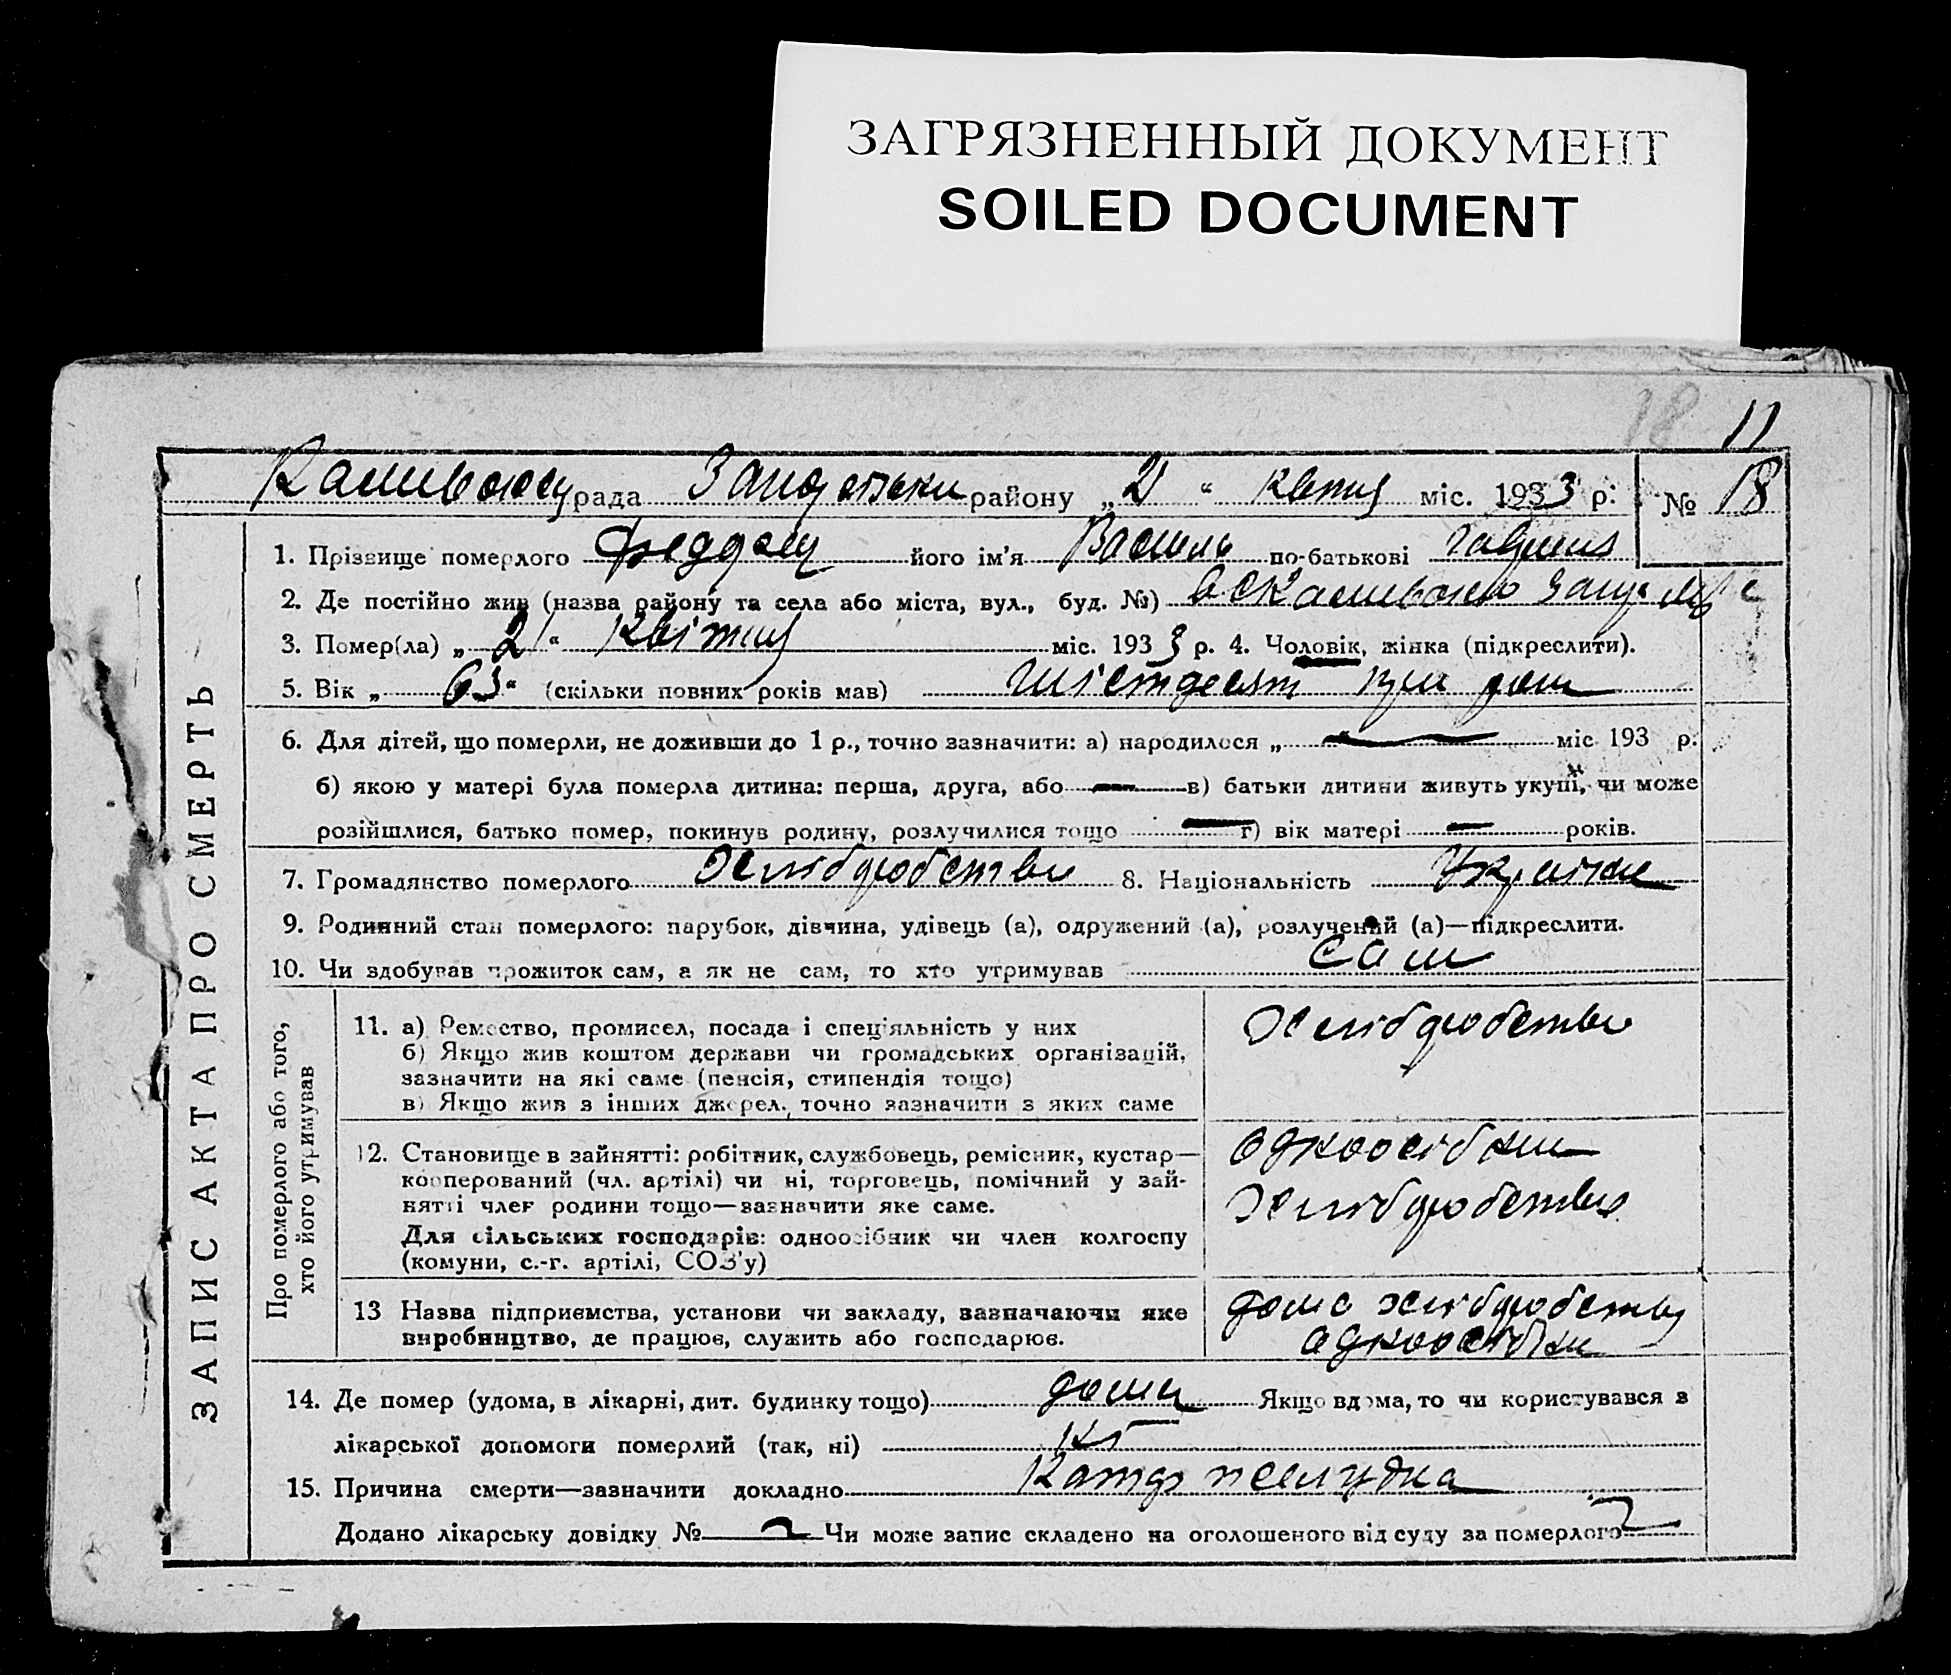 ЗАГРЯЗНЕННЫЙ ДОКУМЕНТ
SOILED DOCUMENT
18 11
рада району „21“ міс. 1933 р. № 18
ЗАПИС АКТА ПРО СМЕРТЬ
1. Прізвище померлого його ім'я Василь по-батькові
2. Де постійно жив (назва району та села або міста, вул., буд. №)
3. Помер(ла) „21“ Квітня міс. 1933 р. 4. Чоловік, жінка (підкреслити).
5. Вік „63“ (скільки повних років мав) шістдесят три
6. Для дітей, що померли, не доживши до 1 р., точно зазначити: а) народилося „ “ міс 193 р.
б) якою у матері була померла дитина: перша, друга, або — в) батьки дитини живуть укупі, чи може
розійшлися, батько помер, покинув родину, розлучилися тощо — г) вік матері — років.
7. Громадянство померлого Хліборобство 8. Національність
9. Родинний стан померлого: парубок, дівчина, удівець (а), одружений (а), розлучений (а)—підкреслити.
10. Чи здобував прожиток сам, а як не сам, то хто утримував сам
Про померлого або того,
хто його утримував
11. а) Ремество, промисел, посада і спец'яльність у них
б) Якщо жив коштом держави чи громадських організацій,
зазначити на які саме (пенсія, стипендія тощо)
в) Якщо жив з інших джерел, точно зазначити з яких саме
Хліборобство
12. Становище в зайнятті: робітник, службовець, ремісник, кустар—
кооперований (чл. артілі) чи ні, торговець, помічний у зай-
нятті член родини тощо—зазначити яке саме.
Для сільських господарів: одноосібник чи член колгоспу
(комуни, с.-г. артілі, СОЗ'у)
13 Назва підприємства, установи чи закладу, зазначаючи яке
виробництво, де працює, служить або господарює.
14. Де помер (удома, в лікарні, дит. будинку тощо) дома Якщо вдома, то чи користувався з
лікарської допомоги померлий (так, ні) ні
15. Причина смерти—зазначити докладно Катар желудка
Додано лікарську довідку № Чи може запис складено на оголошеного від суду за померлого